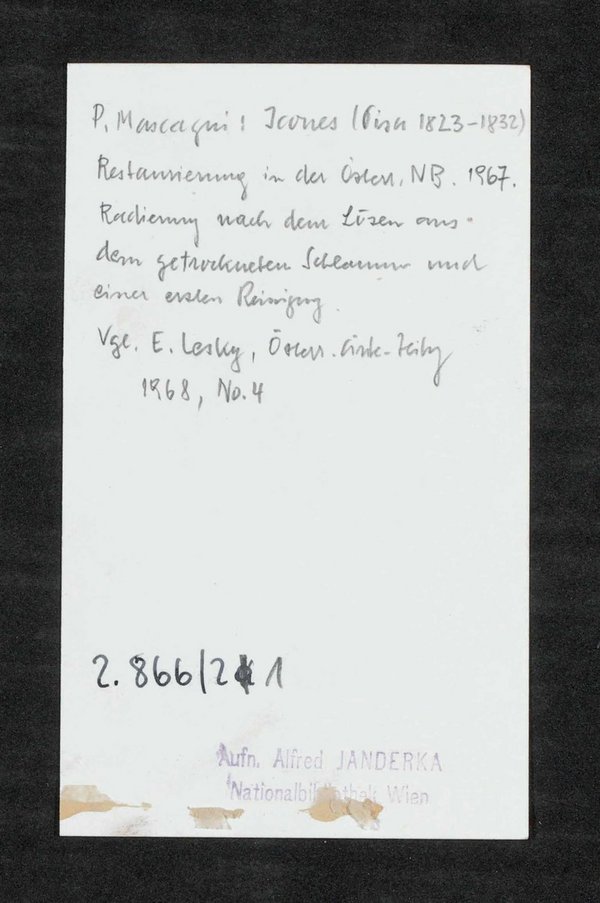 P. Mascagni: Icones (Pisa 1823-1832)
Restaurierung in der Österr. NB. 1967.
Radierung nach dem Lösen aus
dem getrockneten Schlamm und
einer ersten Reinigung.
Vgl. E. Lesky, Österr. Ärzte-Zeitg
1968, No. 4
2.866/2 1
Aufn. Alfred JANDERKA
Nationalbibliothek Wien